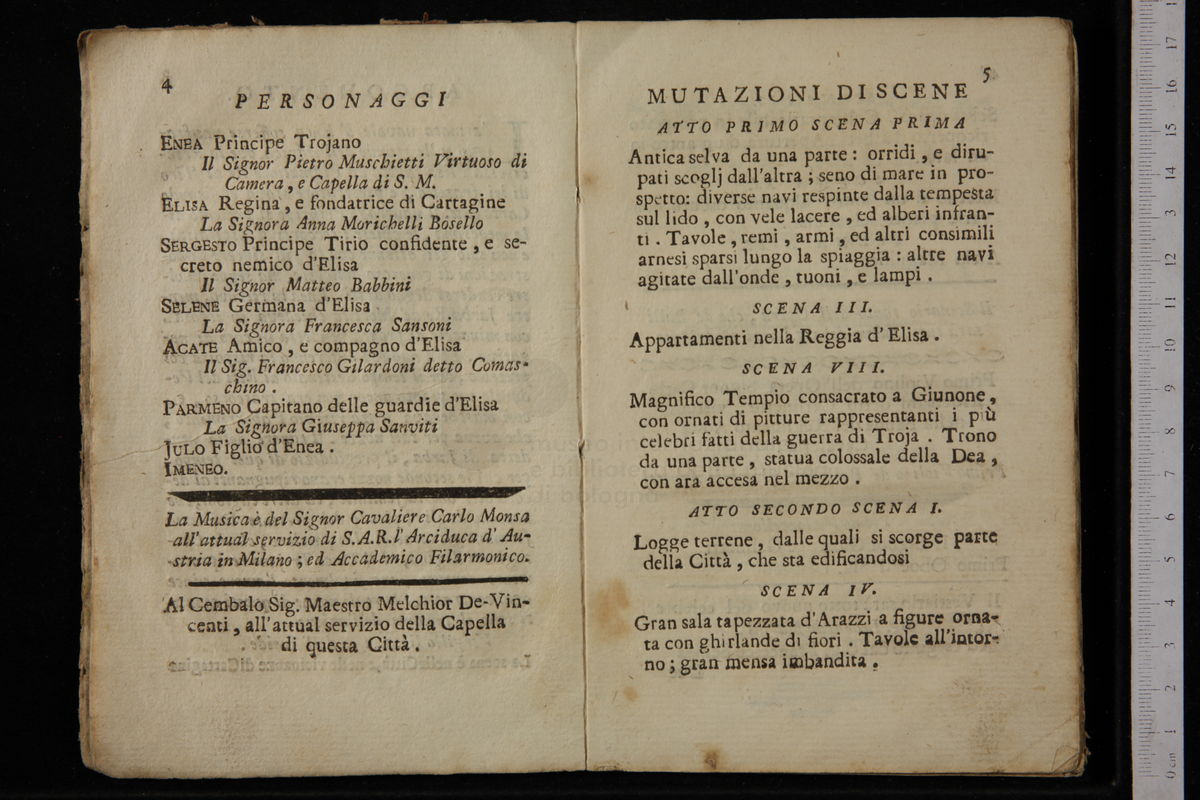 4
PERSONAGGI
ENEA Principe Trojano
Il Signor Pietro Muschietti Virtuoso di
Camera, e Capella di S. M.
ELISA Regina, e fondatrice di Cartagine
La Signora Anna Morichelli Bosello
SERGESTO Principe Tirio confidente, e se-
creto nemico d'Elisa
Il Signor Matteo Babbini
SELENE Germana d'Elisa
La Signora Francesca Sansoni
ACATE Amico, e compagno d'Elisa
Il Sig. Francesco Gilardoni detto Comas-
chino.
PARMENO Capitano delle guardie d'Elisa
La Signora Giuseppa Sanviti
JULO Figlio d'Enea.
IMENEO.
La Musica è del Signor Cavaliere Carlo Monsa
all'attual servizio di S.A.R. l'Arciduca d'Au-
stria in Milano; ed Accademico Filarmonico.
Al Cembalo Sig. Maestro Melchior De-Vin-
centi, all'attual servizio della Capella
di questa Città.
5
MUTAZIONI DI SCENE
ATTO PRIMO SCENA PRIMA
Antica selva da una parte: orridi, e diru-
pati scoglj dall'altra; seno di mare in pro-
spetto: diverse navi respinte dalla tempesta
sul lido, con vele lacere, ed alberi infran-
ti. Tavole, remi, armi, ed altri consimili
arnesi sparsi lungo la spiaggia: altre navi
agitate dall'onde, tuoni, e lampi.
SCENA III.
Appartamenti nella Reggia d'Elisa.
SCENA VIII.
Magnifico Tempio consacrato a Giunone,
con ornati di pitture rappresentanti i più
celebri fatti della guerra di Troja. Trono
da una parte, statua colossale della Dea,
con ara accesa nel mezzo.
ATTO SECONDO SCENA I.
Logge terrene, dalle quali si scorge parte
della Città, che sta edificandosi
SCENA IV.
Gran sala tapezzata d'Arazzi a figure orna-
ta con ghirlande di fiori. Tavole all'intor-
no; gran mensa imbandita.
0 cm 1 2 3 4 5 6 7 8 9 10 11 12 13 14 15 16 17